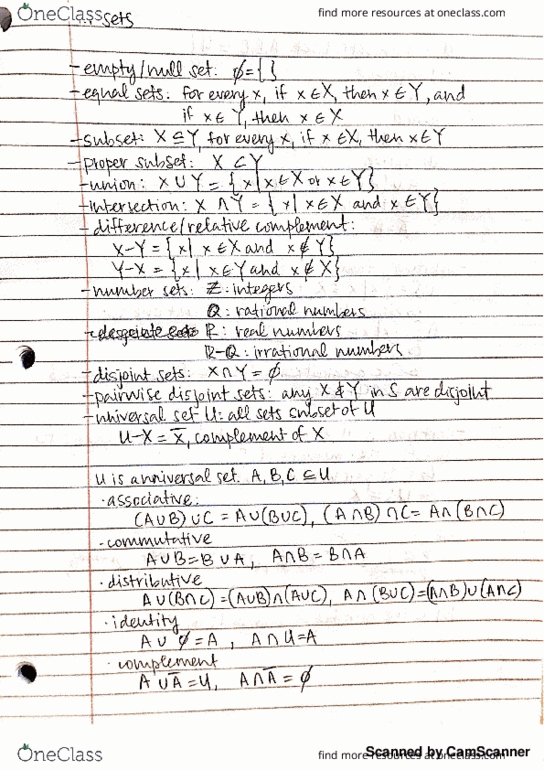 OneClass
find more resources at oneclass.com
sets
- empty/null set: ∅ = { }
- equal sets: for every x, if x ∈ X, then x ∈ Y, and
if x ∈ Y, then x ∈ X
- subset: X ⊆ Y, for every x, if x ∈ X, then x ∈ Y
- proper subset: X ⊂ Y
- union: X ∪ Y = { x | x ∈ X or x ∈ Y}
- intersection: X ∩ Y = { x | x ∈ X and x ∈ Y}
- difference/relative complement:
X-Y = { x | x ∈ X and x ∉ Y}
Y-X = { x | x ∈ Y and x ∉ X}
- number sets: Z: integers
Q: rational numbers
R: real numbers
R-Q: irrational numbers
- disjoint sets: X ∩ Y = ∅
- pairwise disjoint sets: any X & Y in S are disjoint
- universal set U: all sets subset of U
U-X = X̅, complement of X
U is a universal set. A, B, C ⊆ U
· associative:
(A∪B) ∪C = A∪(B∪C), (A∩B) ∩C = A∩(B∩C)
· commutative
A∪B = B∪A, A∩B = B∩A
· distributive
A∪(B∩C) = (A∪B)∩(A∪C), A∩(B∪C) = (A∩B)∪(A∩C)
· identity
A∪∅ = A, A∩U = A
· complement
A∪A̅ = U, A∩A̅ = ∅
OneClass
find more resources at oneclass.com
Scanned by CamScanner